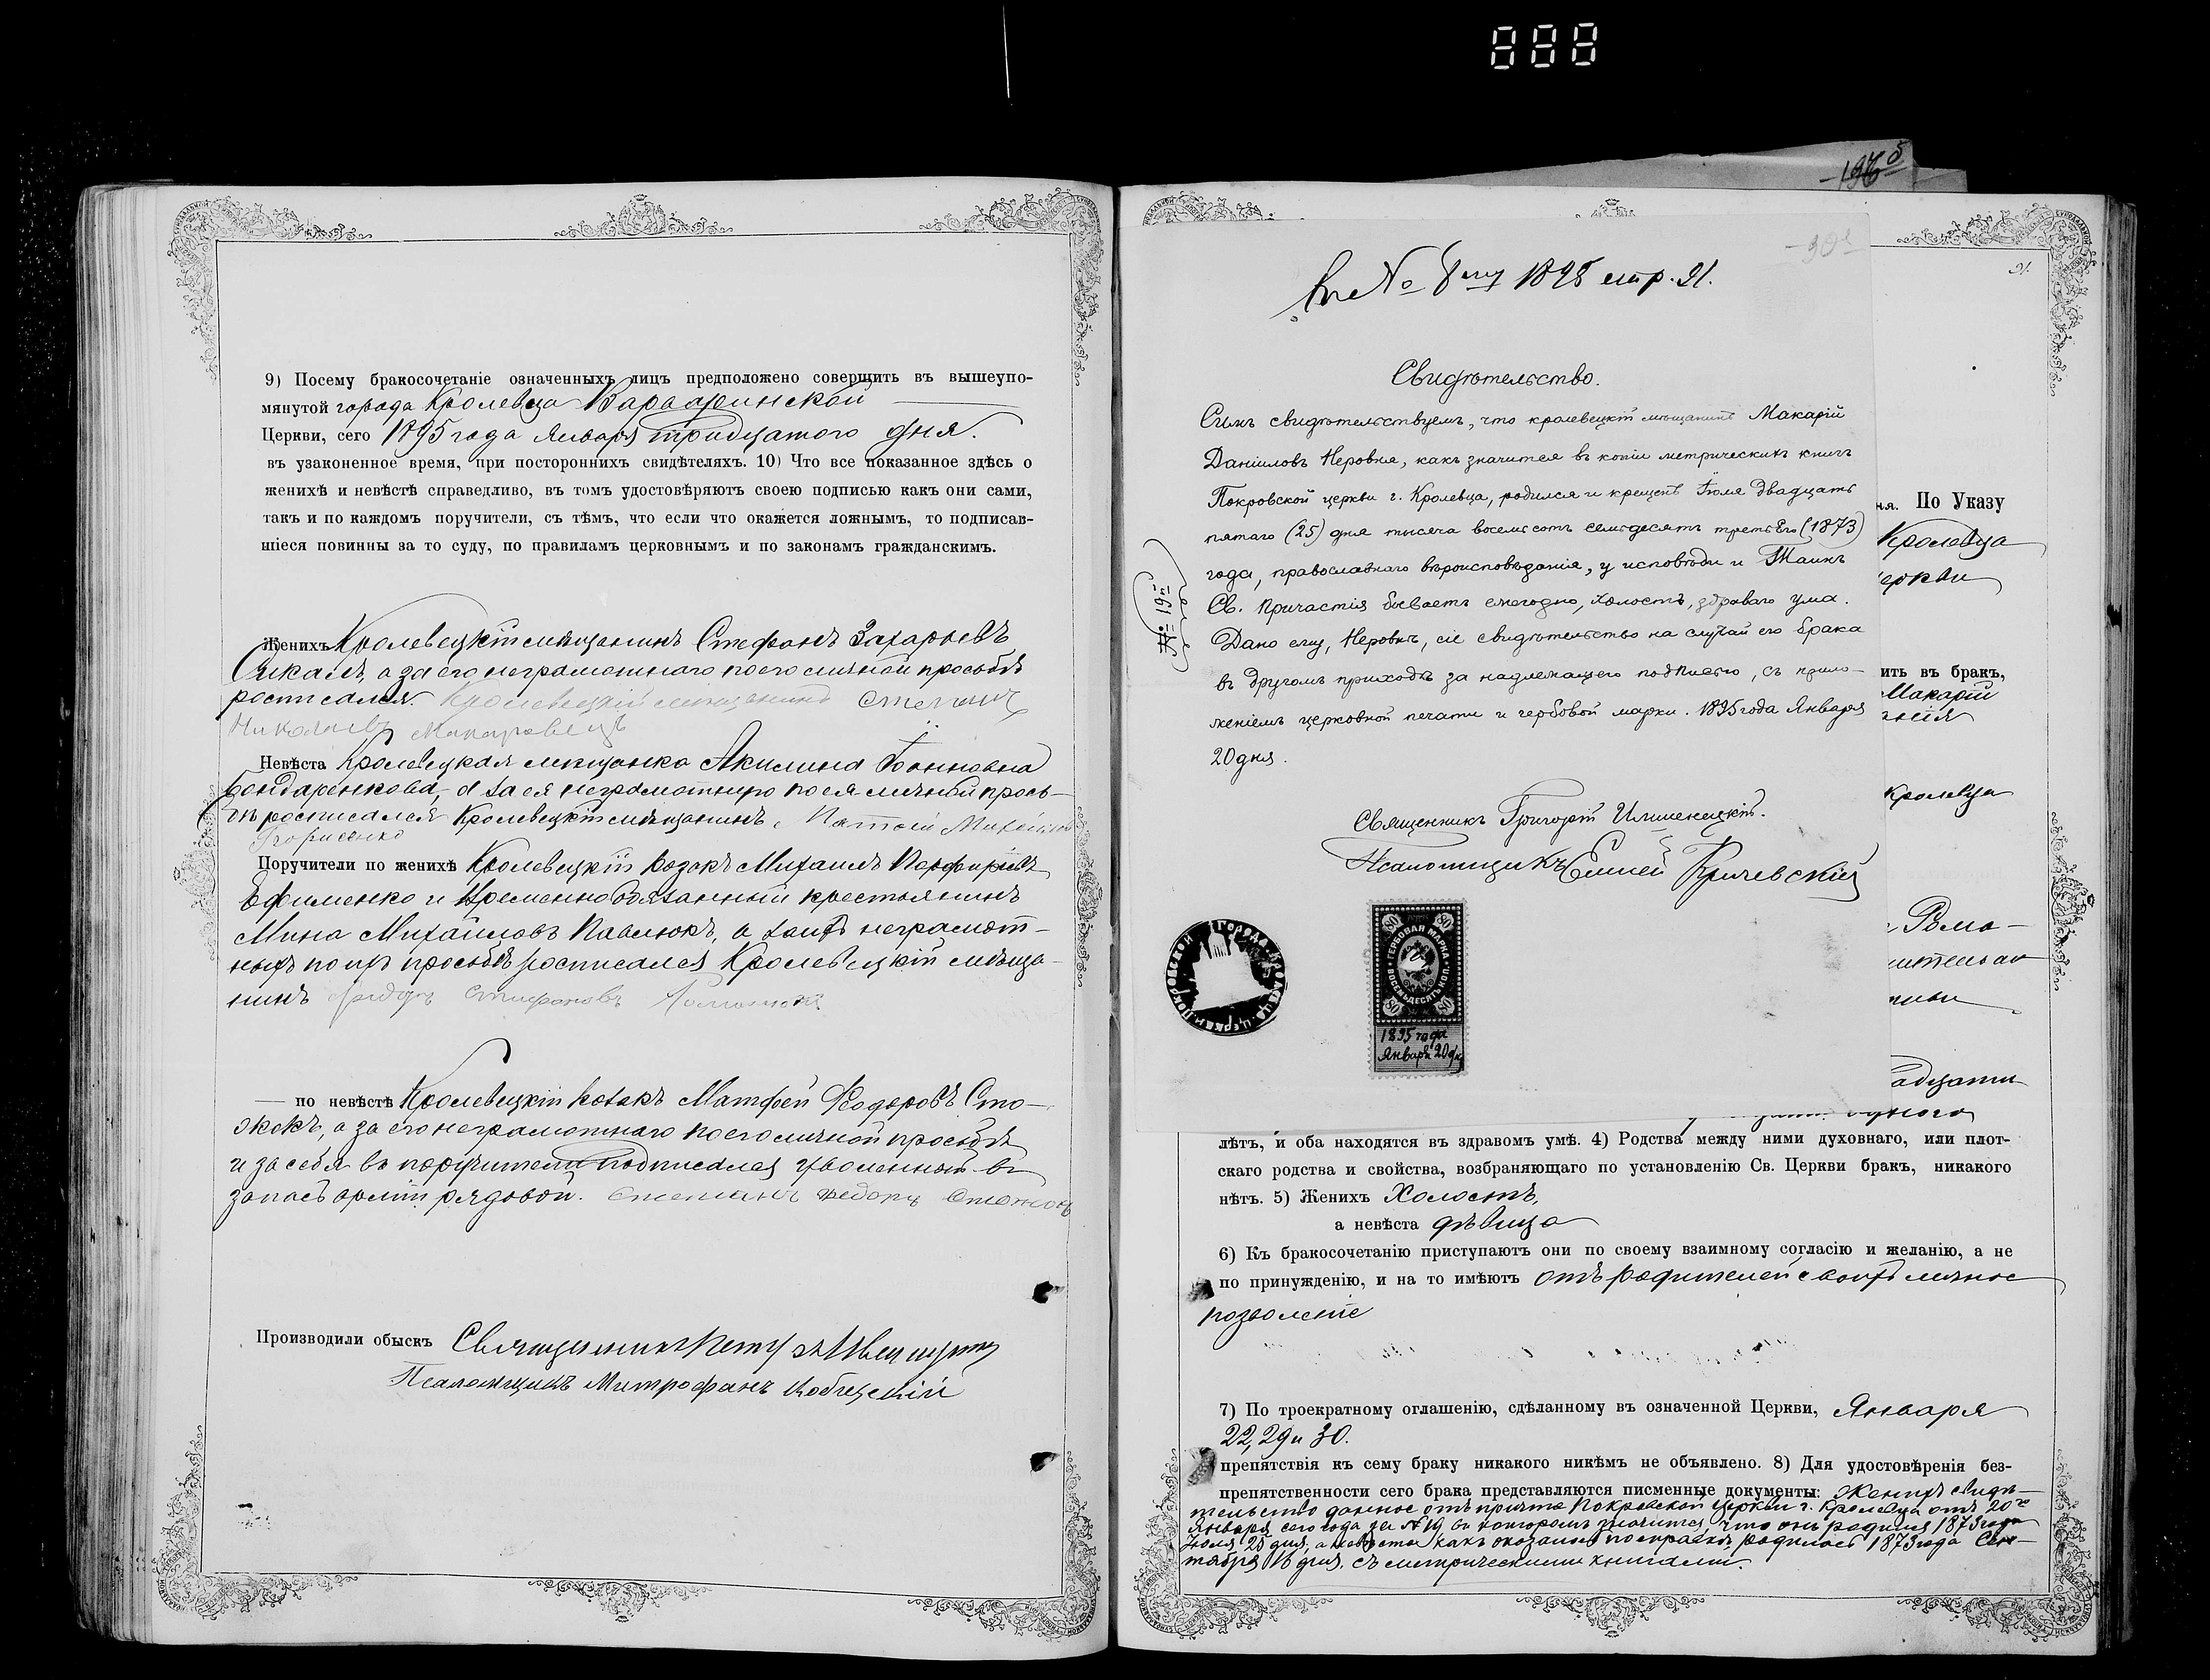 9) Посему бракосочетаніе означенныхъ лицъ предположено совершить въ вышеупо-
мянутой города Кролевца Варваринской
Церкви, сего 1895 года Января тридцатого дня.
въ узаконенное время, при постороннихъ свидѣтеляхъ. 10) Что все показанное здѣсь о
женихѣ и невѣстѣ справедливо, въ томъ удостовѣряютъ своею подписью какъ они сами,
такъ и по каждомъ поручители, съ тѣмъ, что если что окажется ложнымъ, то подписав-
шіеся повинны за то суду, по правиламъ церковнымъ и по законамъ гражданскимъ.
Женихъ Кролевецкій мѣщанинъ Стефанъ Захарьевъ
а за его неграмотнаго по его личной просьбѣ
росписался Кролевецкій мещанинъ Степанъ
Николаевъ Макаровецъ
Невѣста Кролевецкая мѣщанка Акилина Іоанновна
Бондаренкова, а за ея неграмотную по ея личной прось-
бѣ росписался Кролевецкій мѣщанинъ
Борисенко
Поручители по женихѣ Кролевецкій козакъ Михаилъ Порфирьевъ
Ефименко и временно обязанный крестьянинъ
Мина Михайловъ Павлюкъ, а за нихъ неграмот-
ныхъ по ихъ просьбѣ росписался Кролевецкій мѣща-
нинъ Стифановъ
— по невѣстѣ Кролевецкій козакъ Матфей Ѳедоровъ Сто-
жокъ, а за его неграмотнаго по его личной просьбѣ
и за себя въ поручители подписался уволенный въ
запасъ арміи рядовой. Степанъ Федоръ Стожокъ
Производили обыскъ Священникъ Петръ
Псаломщикъ Митрофанъ
-197б
-90²
91.
къ № 8му 1895 стр. 91.
Свидѣтельство.
Симъ свидѣтельствуемъ, что кролевецкій мѣщанинъ Макарій
Даніиловъ Неровня, какъ значится въ копіи метрическихъ книгъ
Покровской церкви г. Кролевца, родился и крещенъ Іюля двадцать
пятаго (25) дня тысяча восемьсотъ семьдесятъ третьяго (1873)
года, православнаго вѣроисповѣданія, у исповѣди и Таинъ
Св. Причастія бываетъ ежегодно, холостъ, здраваго ума.
Дано ему, Неровнѣ, сіе свидѣтельство на случай его брака
въ другомъ приходѣ за надлежащею подписью, съ прило-
женіемъ церковной печати и гербовой марки. 1895 года Января
20 дня.
№ 19й
Священникъ Григорій
Псаломщикъ Кричевскій
ПОКРОВСКОЙ ГОРОДА КРОЛЕВЦА ЦЕРКВИ
80 80
ГЕРБОВАЯ МАРКА ВОСЕМЬДЕСЯТЪ КОП.
80 80
1895 года
Января 20 дня
ня. По Указу
Кролевца
еркви
ить въ бракъ,
Макарій
Кролевца
Рома-
адцати
одного
лѣтъ, и оба находятся въ здравомъ умѣ. 4) Родства между ними духовнаго, или плот-
скаго родства и свойства, возбраняющаго по установленію Св. Церкви бракъ, никакого
нѣтъ. 5) Женихъ Холостъ,
а невѣста дѣвица
6) Къ бракосочетанію приступаютъ они по своему взаимному согласію и желанію, а не
по принужденію, и на то имѣютъ отъ родителей своихъ личное
позволеніе
7) По троекратному оглашенію, сдѣланному въ означенной Церкви, Января
22, 29 и 30.
препятствія къ сему браку никакого никѣмъ не объявлено. 8) Для удостовѣренія без-
препятственности сего брака представляются писменные документы: Женихъ свидѣ-
тельство данное отъ причта Покровской церкви г. Кролевца отъ 20го
Января сего года за № 19 въ которомъ значится, что онъ родился 1873 года
Іюля 25 дня, а невѣста какъ оказалось по справкѣ родилась 1873 года Сен-
тября 16 дня. съ метрическими книгами.